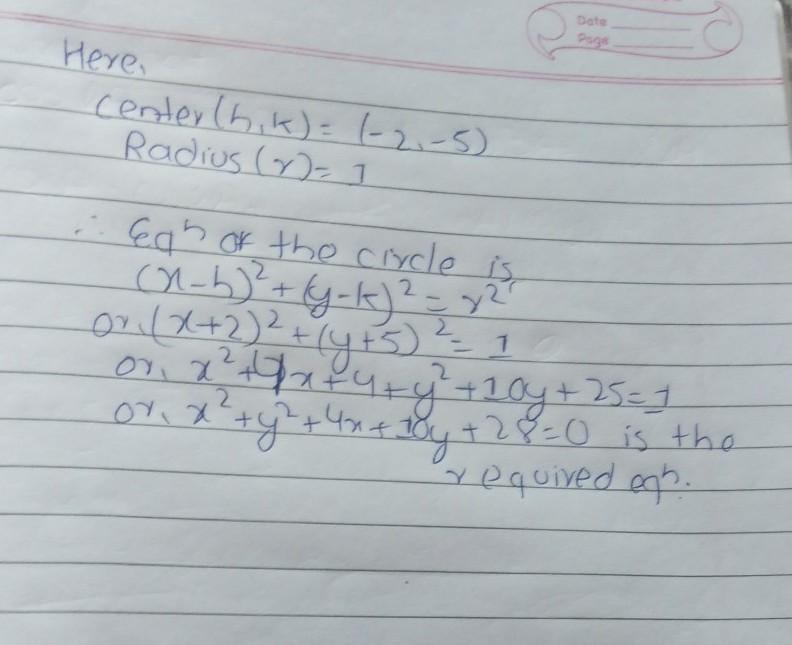 Date
Page
Here,
Center(h,k)= (-2,-5)
Radius(r)= 1
∴ Eqn of the circle is,
(x-h)²+(y-k)²=r²
or,(x+2)²+(y+5)²=1
or, x²+4x+4+y²+10y+25=1
or, x²+y²+4x+10y+28=0 is the
required eqn.